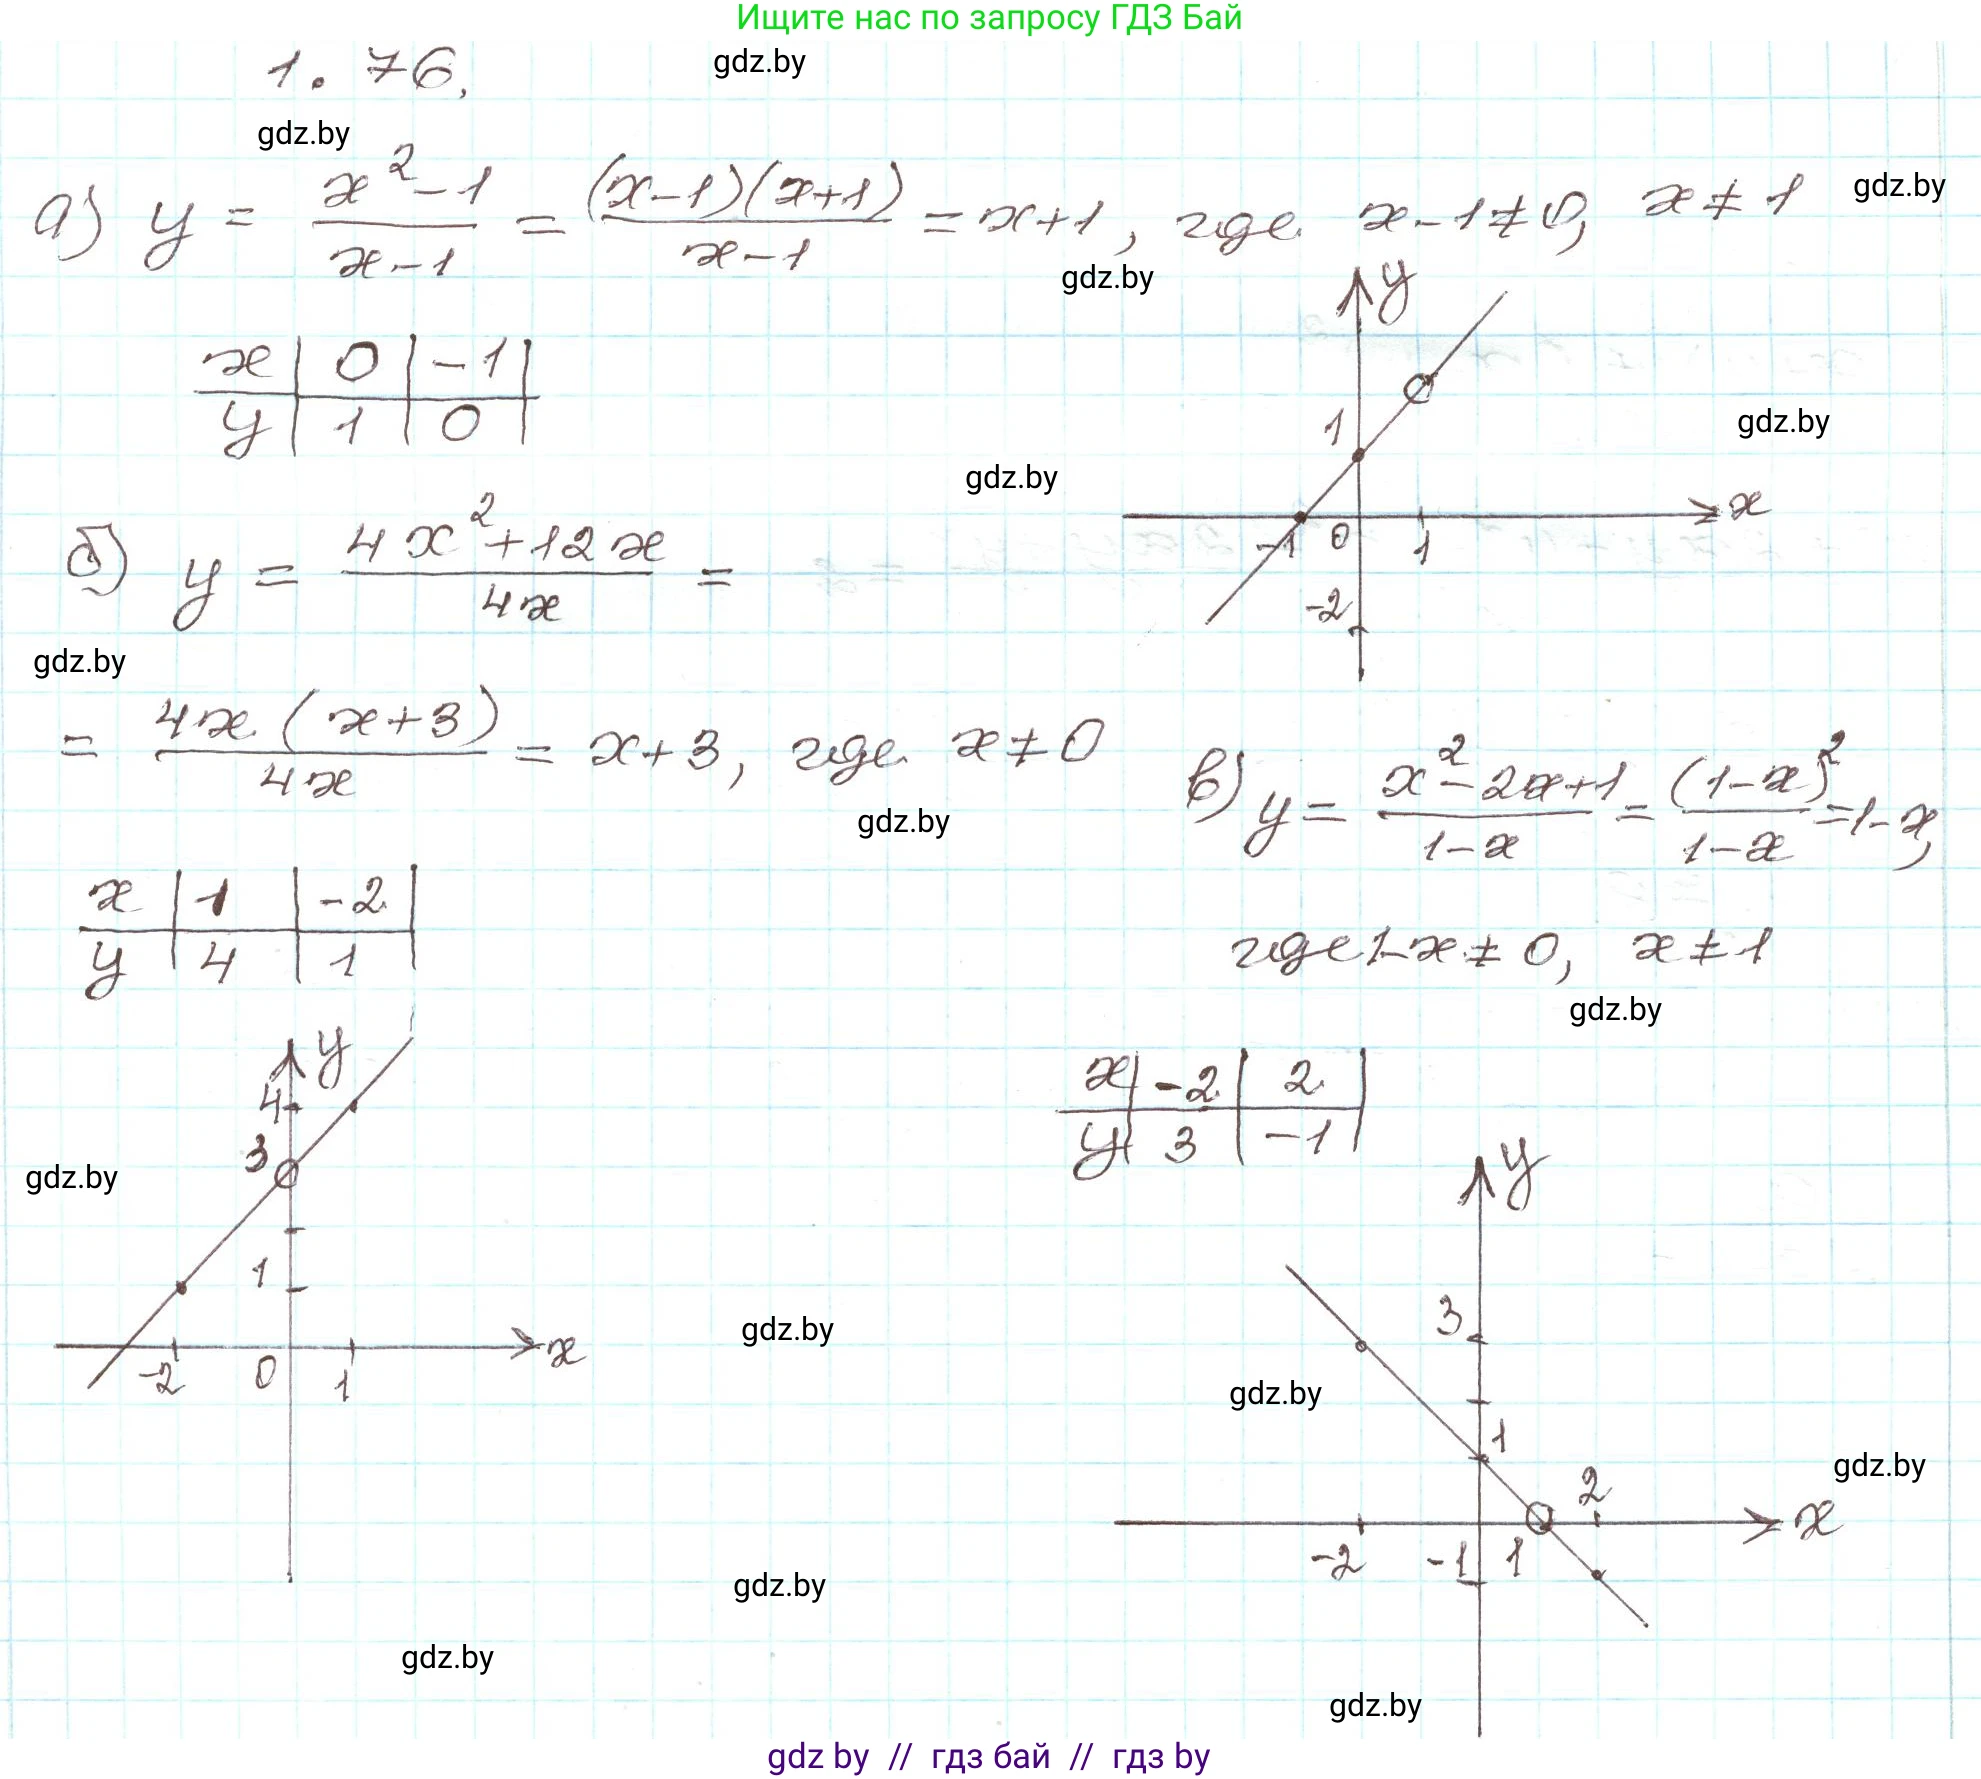 Ищите нас по запросу ГДЗ Бай
1.76.
gdz.by
gdz.by
а) y = \frac{x^2-1}{x-1} = \frac{(x-1)(x+1)}{x-1} = x+1, где x-1≠0, x≠1
gdz.by
gdz.by
x | 0 | -1
y | 1 | 0
y
1
-1 0 1 x
-2
gdz.by
gdz.by
б) y = \frac{4x^2+12x}{4x} =
gdz.by
= \frac{4x(x+3)}{4x} = x+3, где x≠0
gdz.by
x | 1 | -2
y | 4 | 1
y
4
3
1
-2 0 1 x
gdz.by
в) y = \frac{x^2-2x+1}{1-x} = \frac{(1-x)^2}{1-x} = 1-x,
где 1-x≠0, x≠1
gdz.by
x | -2 | 2
y | 3 | -1
y
3
1
2
-2 -1 1 x
gdz.by
gdz.by
gdz.by
gdz.by
gdz.by
gdz.by
gdz by // гдз бай // гдз by